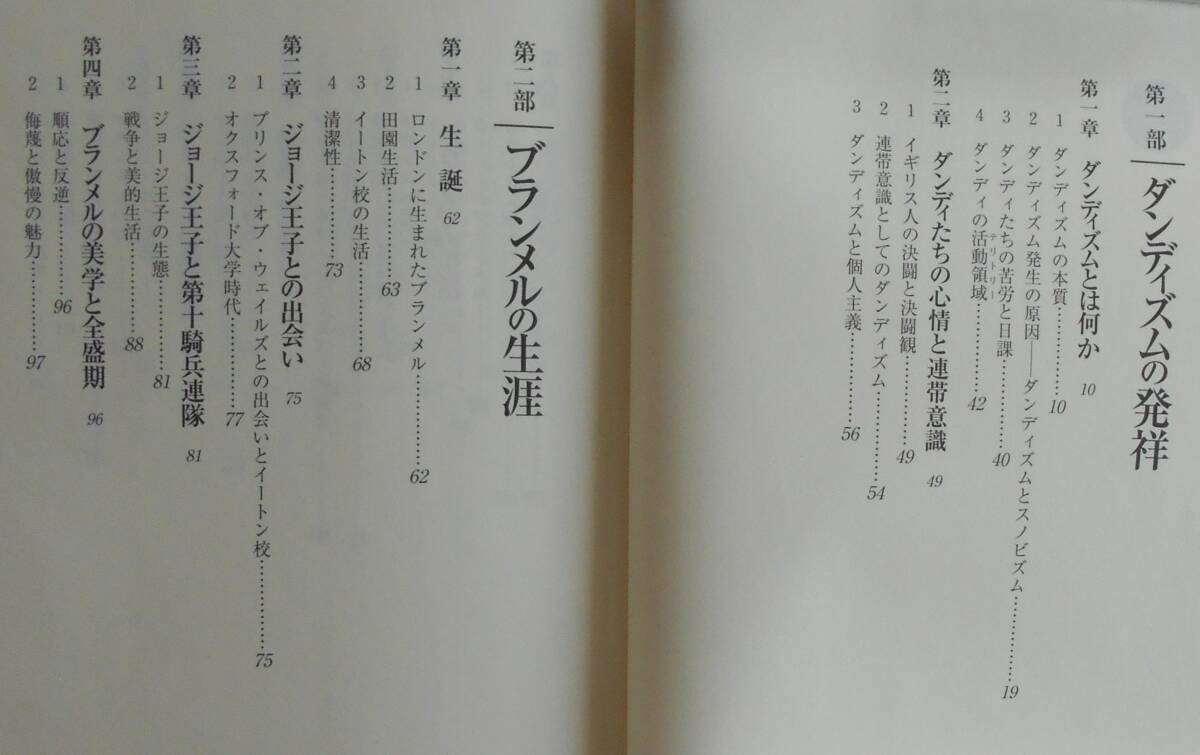 第一部 ダンディズムの発祥
第一章 ダンディズムとは何か 10
1 ダンディズムの本質…………10
2 ダンディズム発生の原因――ダンディズムとスノビズム…………19
3 ダンディたちの苦労と日課…………40
4 ダンディの活動領域…………42
テリトリー
第二章 ダンディたちの心情と連帯意識 49
1 イギリス人の決闘と決闘観…………49
2 連帯意識としてのダンディズム…………54
3 ダンディズムと個人主義…………56
第二部 ブランメルの生涯
第一章 生誕 62
1 ロンドンに生まれたブランメル…………62
2 田園生活…………63
3 イートン校の生活…………68
4 清潔性…………73
第二章 ジョージ王子との出会い 75
1 プリンス・オブ・ウェイルズとの出会いとイートン校…………75
2 オクスフォード大学時代…………77
第三章 ジョージ王子と第十騎兵連隊 81
1 ジョージ王子の生態…………81
2 戦争と美的生活…………88
第四章 ブランメルの美学と全盛期 96
1 順応と反逆…………96
2 侮蔑と傲慢の魅力…………97